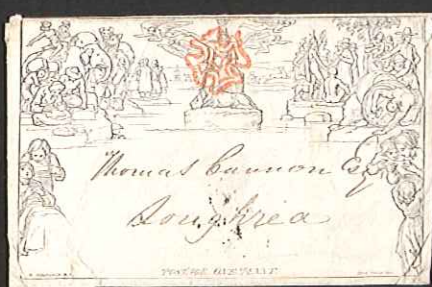 Thomas Cannon Esq
Loughrea
POSTAGE ONE PENNY